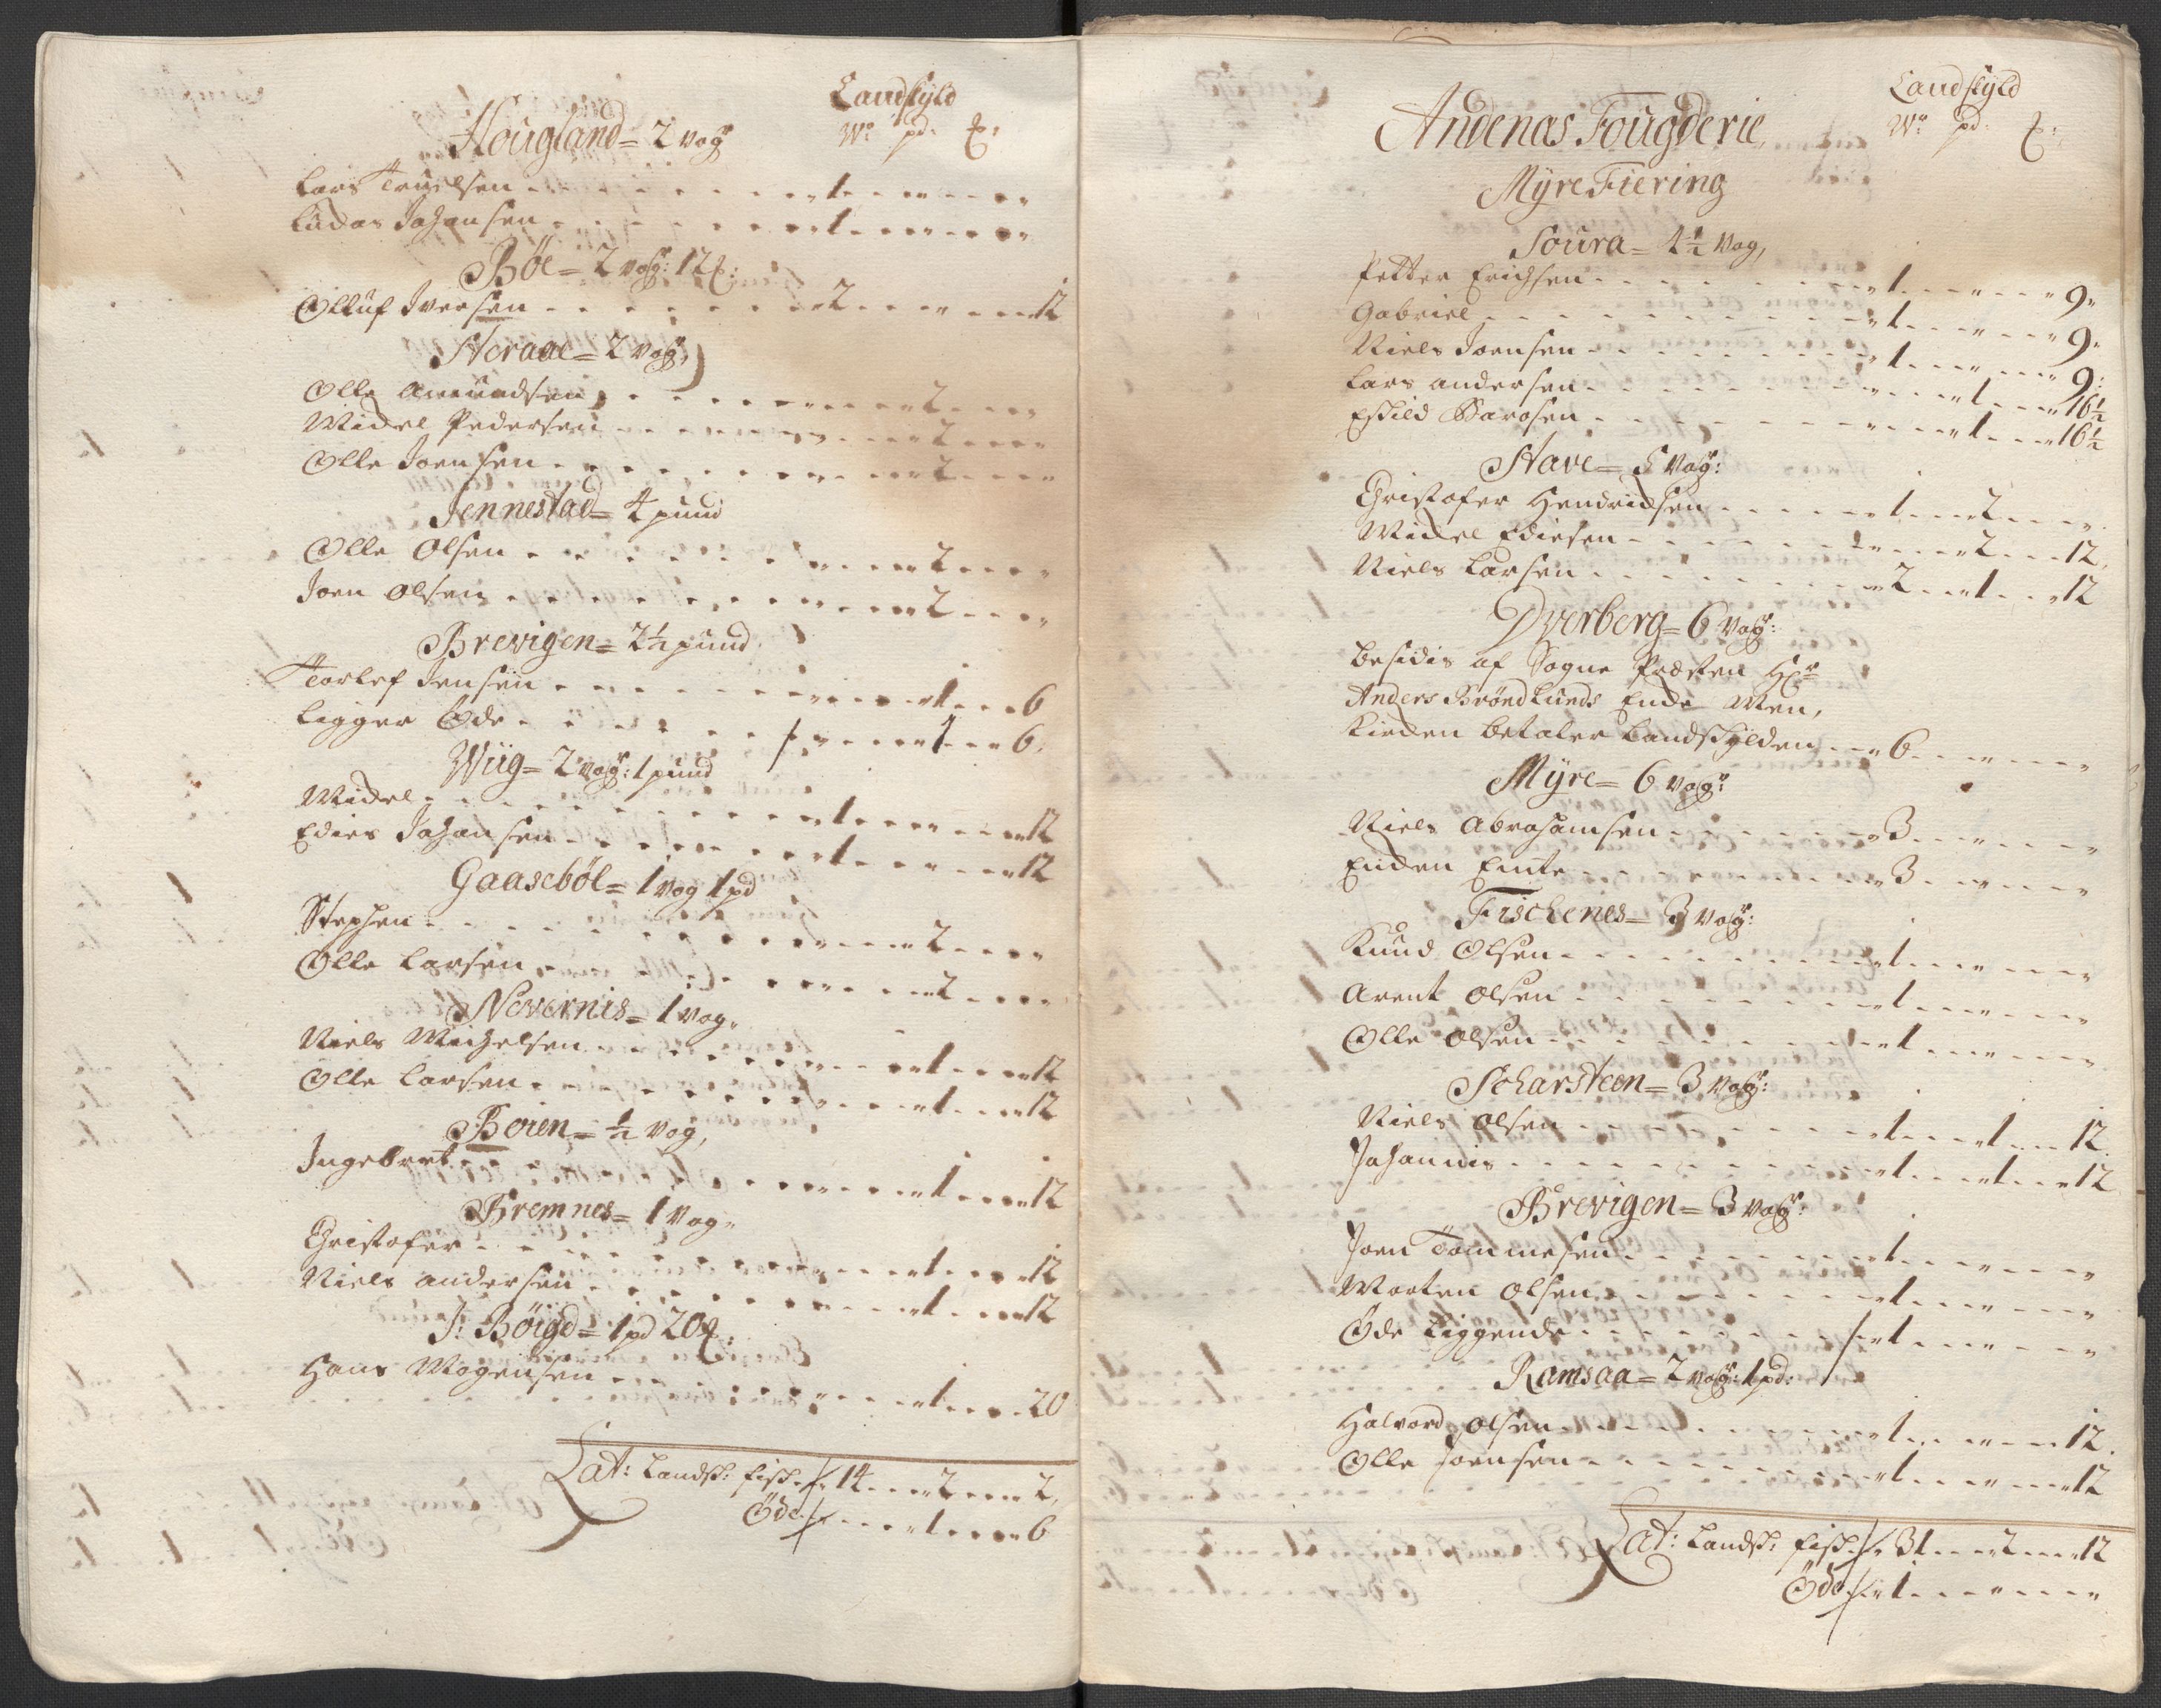 Landskyld
Hougland = 2 vog W: pd: ℔:
Lars Truelsen - - - 1 - - -
Ludas Johansen - - - 1 - - -
Böe = 2 vog: 12 ℔:
Olluf Iversen - - - 2 - - - 12
Steraae = 2 vog:
Olle Amundsen - - - 2 - - -
Michel Pedersen - - - 2 - - -
Olle Joensen - - - 2 - - -
Jennestad = 4 pund
Olle Olsen - - - 2 - - -
Joen Olsen - - - 2 - - -
Brevigen = 2½ pund
Torlef Jensen - - - 1 - - - 6
Ligger Öde - - - 1 - - - 6
Wiig = 2 vog: 1 pund
Michel - - - 1 - - - 12
Edies Johansen - - - 1 - - - 12
Gaaseböl = 1 vog 1 pd
Stephen - - - 2 - - -
Olle Larsen - - - 2 - - -
Nevernis = 1 vog
Niels Michelsen - - - 1 - - - 12
Olle Larsen - - - 1 - - - 12
Boien = ½ vog,
Ingebret - - - 1 - - - 12
Bremnes = 1 vog
Christofer - - - 1 - - - 12
Niels Andersen - - - 1 - - - 12
I: Böigd = 1 pd 20 ℔:
Hans Mogensen - - - 1 - - - 20
Lat: Landsk: fisk - 14 - - - 2 - - - 2
Öde - - - 1 - - - 6
Landskyld
Andenas Fougderie, W: pd: ℔:
Myre Fiering
Soura = 4½ vog,
Petter Erichsen - - - 1 - - - 9
Gabriel - - - 1 - - - 9
Niels Joensen - - - 1 - - - 9
Lars Andersen - - - 1 - - - 16½
Eskild Barosen - - - 1 - - - 16½
Stave = 5 vog:
Christofer Hendrichsen - - - 1 - - - 2 - - -
Michel Ediesen - - - 2 - - - 12
Niels Larsen - - - 2 - - - 1 - - - 12
Dverberg = 6 vog:
besidis af Sogne Præsten Hr
Anders Bröndlunds Encke Men,
Kircken betaler Landskylden - - - 6 - - -
Myre = 6 vog:
Niels Abrahamsen - - - 3 - - -
Encken Emte - - - 3 - - -
Fischenes = 3 vog:
Knud Olsen - - - 1 - - -
Arent Olsen - - - 1 - - -
Olle Olsen - - - 1 - - -
Scharsteen = 3 vog:
Niels Olsen - - - 1 - - - 1 - - - 12
Johannis - - - 1 - - - 1 - - - 12
Brevigen = 3 vog:
Joen Tommesen - - - 1 - - -
Morten Olsen - - - 1 - - -
Öde Liggende - - - 1 - - -
Ramsaa = 2 vog: 1 pd:
Halvord Olsen - - - 1 - - - 12
Olle Joensen - - - 1 - - - 12
Lat: Landsk: fisk - 31 - - - 2 - - - 12
Öde - 1 - - -